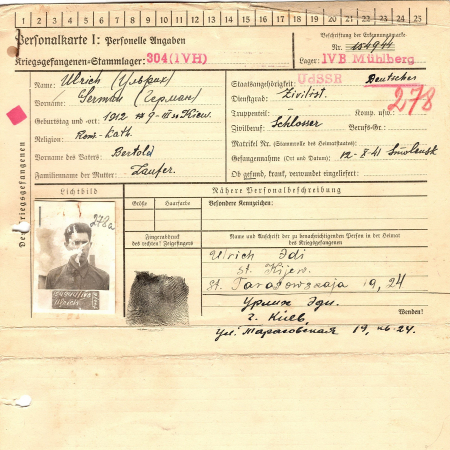 1 2 3 4 5 6 7 8 9 10 11 12 13 14 15 16 17 18 19 20 21 22 23 24 25
Personalkarte I: Personelle Angaben
Kriegsgefangenen-Stammlager: 304(IVH)
Beschriftung der Erkennungsmarke
Nr.
Lager: IVB Mühlberg
Des Kriegsgefangenen
Name: Ulrich (Ульрих)
Vorname: German (Герман)
Geburtstag und -ort: 1912 Kiew.
Religion: Rom-kath.
Vorname des Vaters: Bertold
Familienname der Mutter: Laufer.
UdSSR
Staatsangehörigkeit: Deutscher
Dienstgrad: Zivilist.
278
Truppenteil: Komp. usw.:
Zivilberuf: Schlosser Berufs-Gr.:
Matrikel Nr. (Stammrolle des Heimatstaates):
Gefangennahme (Ort und Datum): 12-X-41 Smolensk
Ob gesund, krank, verwundet eingeliefert:
Lichtbild
Nähere Personalbeschreibung
Größe Haarfarbe Besondere Kennzeichen:
278a
Ulrich
Fingerabdruck
des rechten! Zeigefingers
Name und Anschrift der zu benachrichtigenden Person in der Heimat
des Kriegsgefangenen
Ulrich Edi
st. Kijew.
St. Tarasowskaja 19, 24
Урлих Эди.
г. Киев,
ул. Тарасовская 19, кв. 24.
Wenden!